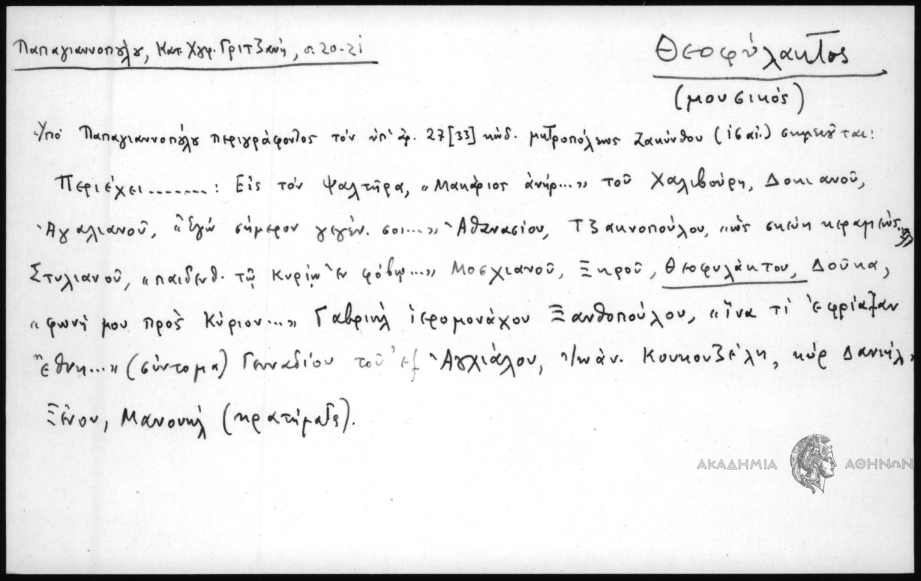 Παπαγιαννοπούλου, Κατ. Χγφ. Γριτζάνη, σ. 20-21
Θεοφύλακτος
(μουσικός)
Ὑπὸ Παπαγιαννοπούλου περιγράφοντος τὸν ὑπ' ἀρ. 27 [33] κώδ. μητροπόλεως Ζακύνθου (ις αἰ.) σημειοῦται:
Περιέχει........: Εἰς τὸν Ψαλτῆρα, «Μακάριος ἀνήρ...» τοῦ Χαλιβούρη, Δοκιανοῦ,
Ἀγαλιανοῦ, «ἐγὼ σήμερον γεγέν. σοι...» Ἀθανασίου, Τζακνοπούλου, «ὡς σκεύη κεραμέως...»
Στυλιανοῦ, «παιδευθ. τῷ Κυρίῳ ἐν φόβῳ...» Μοσχιανοῦ, Ξηροῦ, Θεοφυλάκτου, Δούκα,
«φωνῇ μου πρὸς Κύριον...» Γαβριὴλ ἱερομονάχου Ξανθοπούλου, «ἵνα τί ἐφρύαξαν
ἔθνη...» (σύντομα) Γενναδίου τοῦ ἐξ Ἀγχιάλου, Ἰωάν. Κουκουζέλη, κὺρ Δανιήλ,
Ξένου, Μανουὴλ (κρατήματα).
ΑΚΑΔΗΜΙΑ ΑΘΗΝΩΝ